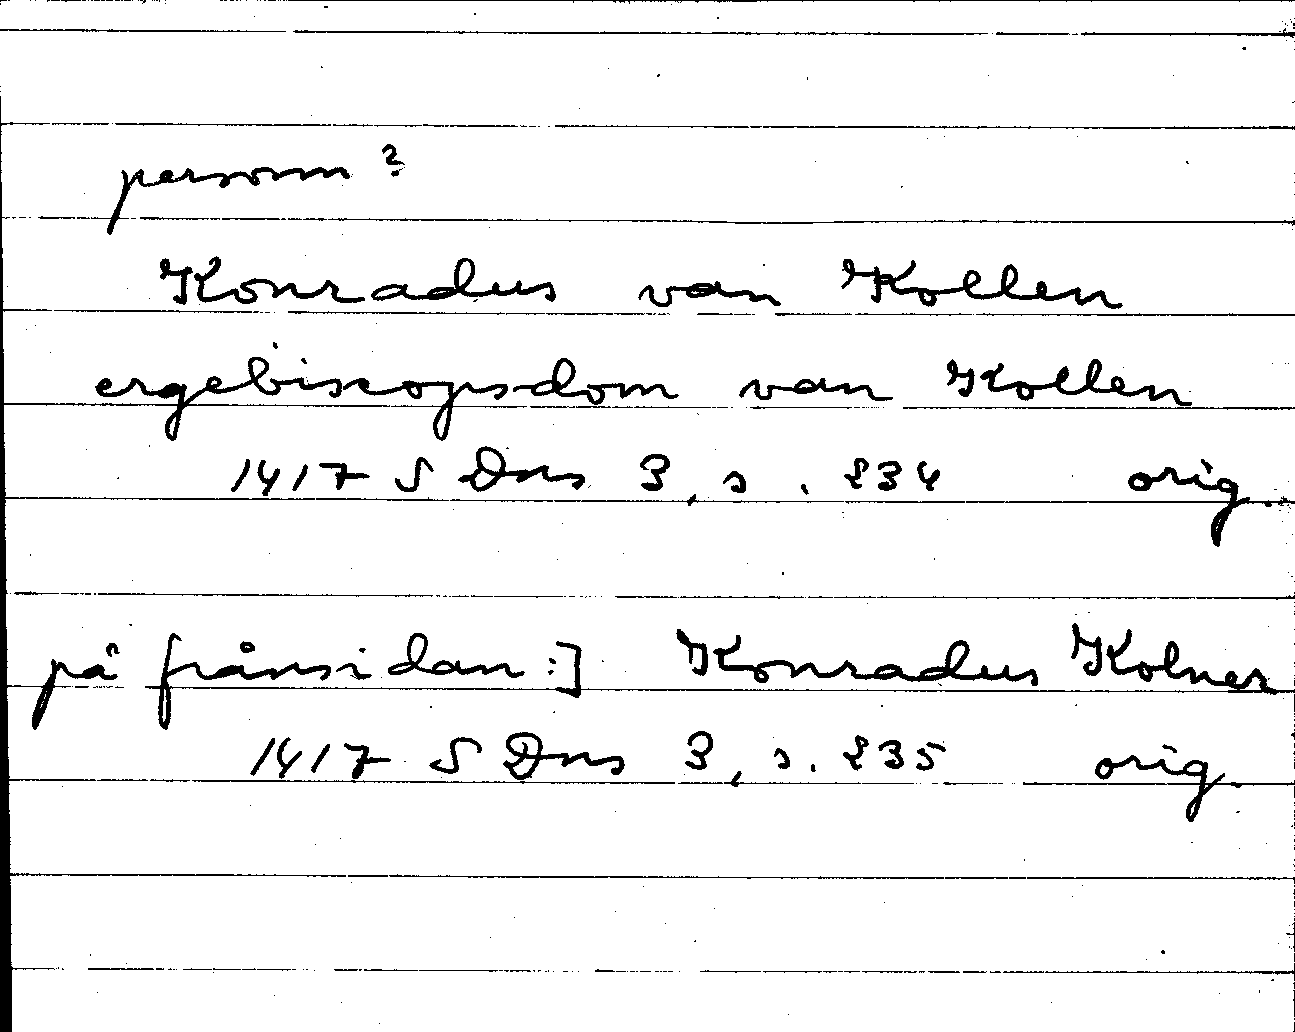 personn?
Konradus van Kollen
ergebiscopsdom van Kollen
1417 S Dns 3, s. 234 orig.
på frånsidan:] Konradus Kolner
1417 S Dns 3, s. 235 orig.